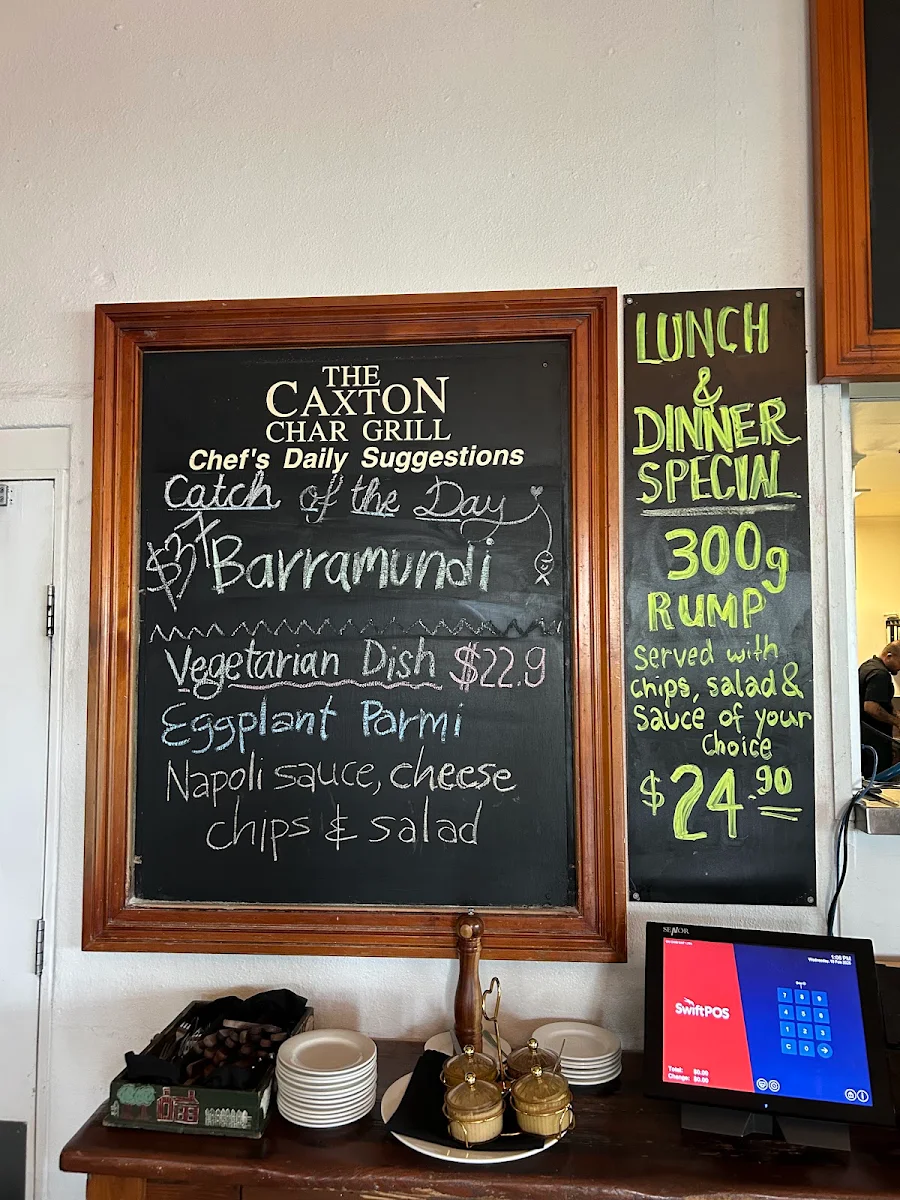 THE
CAXTON
CHAR GRILL
Chef's Daily Suggestions
Catch of the Day
Barramundi
Vegetarian Dish $22.9
Eggplant Parmi
Napoli sauce, cheese
chips & salad
LUNCH
&
DINNER
SPECIAL
300g
RUMP
served with
chips, salad &
Sauce of your
Choice
$24.90
SENOR
1:08 PM
SwiftPOS
7 8 9
4 5 6
1 2 3
C 0
Total: $0.00
Change: $0.00